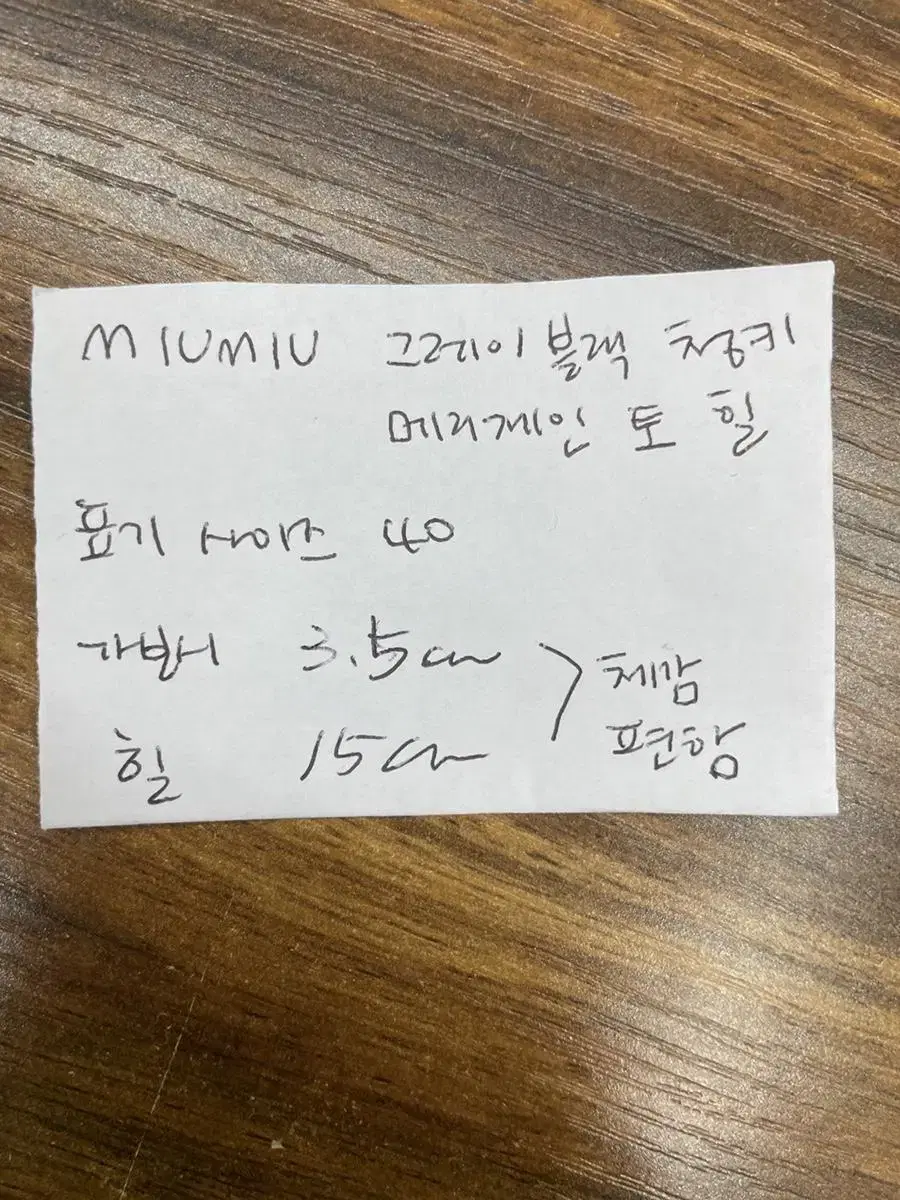 MIUMIU 그레이블랙 청키
메리제인 토 힐
표기 사이즈 40
가보시 3.5cm
힐 15cm
체감
편함